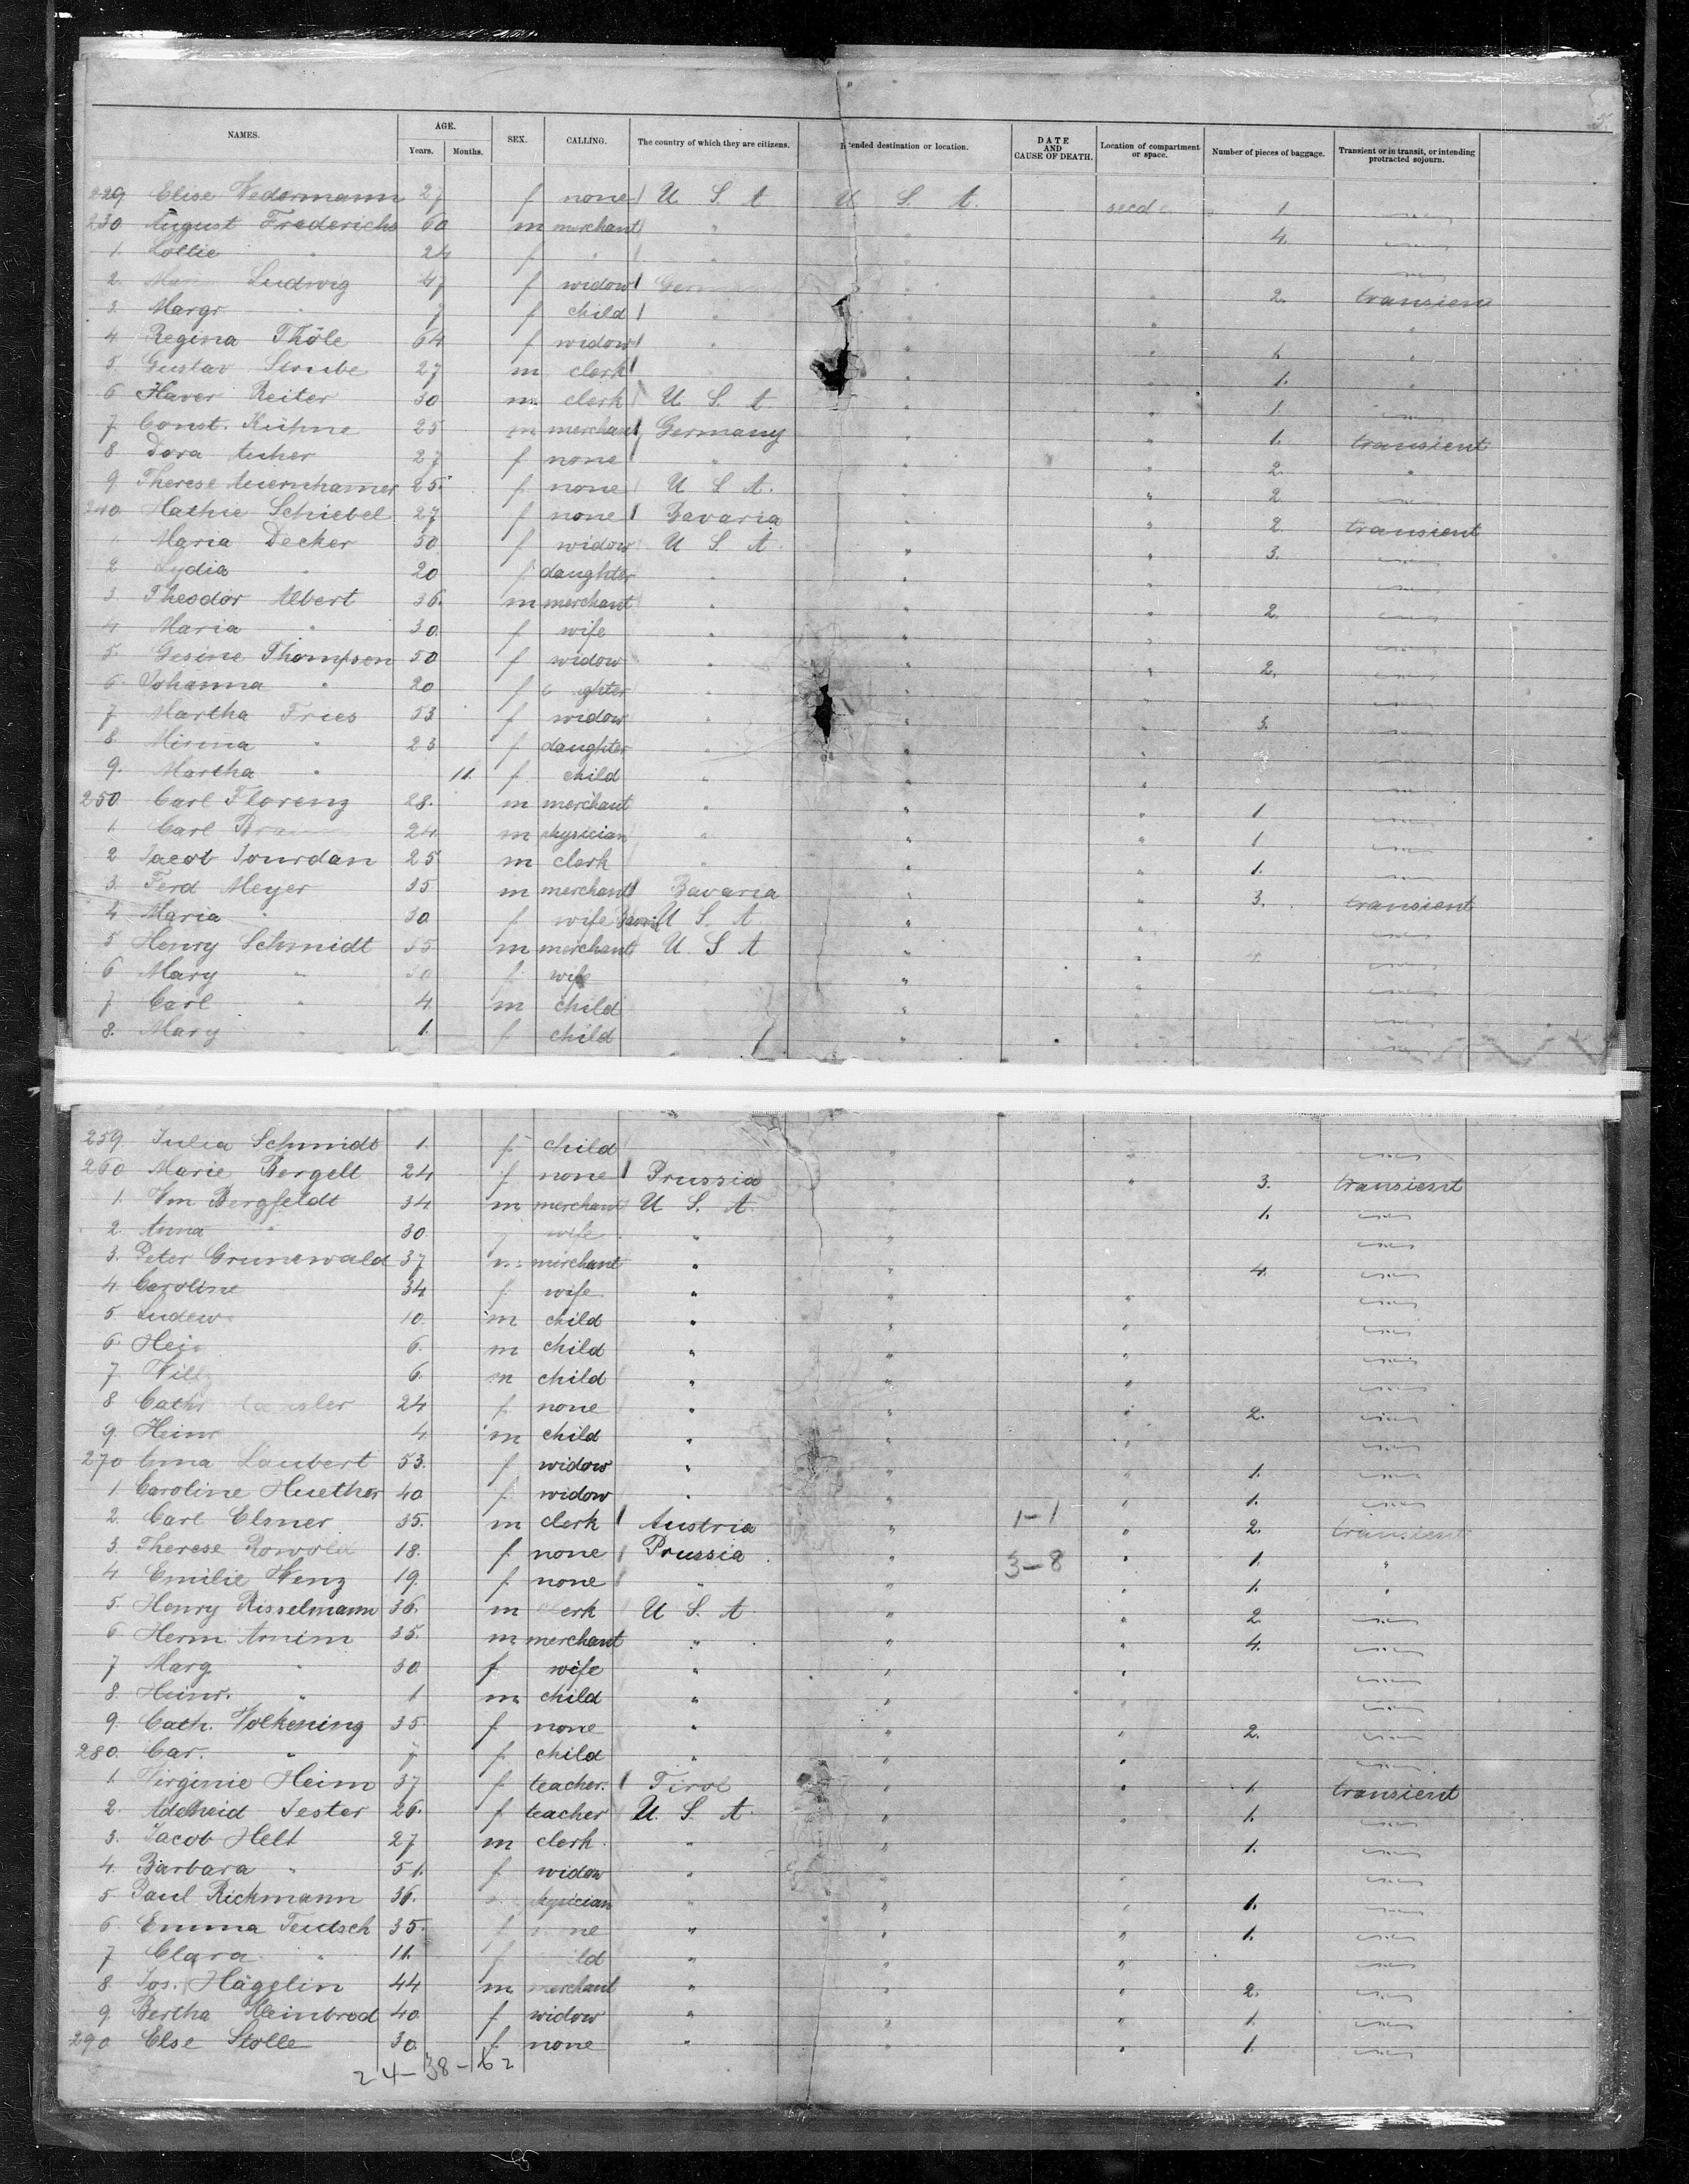 5.
NAMES. AGE. Years. Months. SEX. CALLING. The country of which they are citizens. Intended destination or location. DATE AND CAUSE OF DEATH. Location of compartment or space. Number of pieces of baggage. Transient or in transit, or intending protracted sojourn.
229 Elise Wedermann 27 f none U S A U. S. A. secd 1
230 August Frederichs 60 m merchant " 4.
1. Lottie " 24 f " "
2. Ludwig 47 f widow " 2. transient
3. Margr " 7 f child " " "
4 Regina Thöle 64 f widow " " " 1. "
5. Gustav 27 m clerk " 1. "
6 Haver Reiter 30 m clerk U. S. A. " " 1.
7. Const. Kühne 25 m merchant Germany " " 1. transient
8 Dora Ascher 27 f none " " " 2. "
9. Therese 25 f none U S A. " " 2.
240 Hathie Schiebel 27 f none Bavaria " " 2. transient
1 Maria Decker 50 f widow U S A. " " 3.
2 Lydia " 20 f daughter " " "
3. Theodor Albert 36. m merchant " " " 2.
4 Maria " 30. f wife " " "
5. Gesine Thompson 50 f widow " " " 2.
6. Johanna " 20 f ghter " " "
7 Martha Fries 53 f widow " " " 3.
8. Minna " 23 f daughter " " "
9. Martha " 11. f child " " "
250 Carl Florenz 28. m merchant " " " 1
1. Carl 24. m physician " " " 1
2 Jacob Jourdan 25 m clerk " " " 1.
3. Ferd Meyer 35 m merchant Bavaria " " 3. transient
4 Maria " 30 f wife U S A. " "
5 Henry Schmidt 35 m merchant U S A " "
6 Mary " 30 f wife " "
7 Carl " 4. m child " "
8. Mary " 1. f child " "
259. Julia Schmidt 1. f. child " "
260 Marie Bergelt 24 f none Prussia " " 3. transient
1. Wm Bergfeldt 34 m merchant U. S. A. " 1.
2. Anna " 30. f wife " "
3. Peter Grunewald 37 m merchant " " 4.
4. Caroline 34 f wife " " "
5 Ludew 10. m child " " "
6. Hei 6. m child " " "
7 Willy 6. m child " " "
8 Cathr 24 f none " " " 2.
9. Heinr 4 m child " " "
270 Anna Laubert 53. f widow " " " 1.
1. Caroline Huether 40 f widow " " " 1.
2. Carl Elsner 35. m clerk Austria " 1-1 " 2. transient
3. Therese Rowold 18. f none Prussia " 3-8 " 1. "
4 Emilie Wenz 19. f none " " " 1. "
5. Henry Risselmann 36. m clerk U. S. A. " " 2.
6 Herm Arnim 35. m merchant " " " 4.
7 Marg " 30 f wife " " "
8. Heinr. " 1 m child " " "
9. Cath. Volkening 35. f none " " " 2.
280. Car. " 7 f child " " "
1. Virginie Heim 37 f teacher. Tirol " " 1. transient
2. Adelheid Jester 26. f teacher U. S. A. " " 1.
3. Jacob Helt 27 m clerk. " " 1.
4. Barbara " 51. f widow " " "
5. Paul Richmann 36. physician " " " 1.
6. Emma Teutsch 35. f ne " " " 1.
7 Clara " 11. f ild " " "
8 Jos. Hägelin 44 m merchant " " " 2.
9 Bertha Kleinbrod 40. f widow " " " 1.
290 Else Stolle 30. f. none " " " 1.
24-38-62